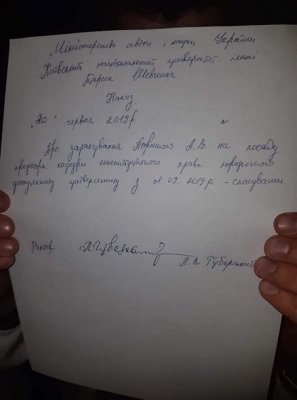 „Міністерство освіти і науки України
Київський національний університет імені
Тараса Шевченка
Наказ
„20" червня 2019р. №
Про зарахування А.В. на посаду
професора кафедри конституційного права юридичного
факультету університету з 01.09.2019 р. – скасувати
Ректор
Л.В. Губерський